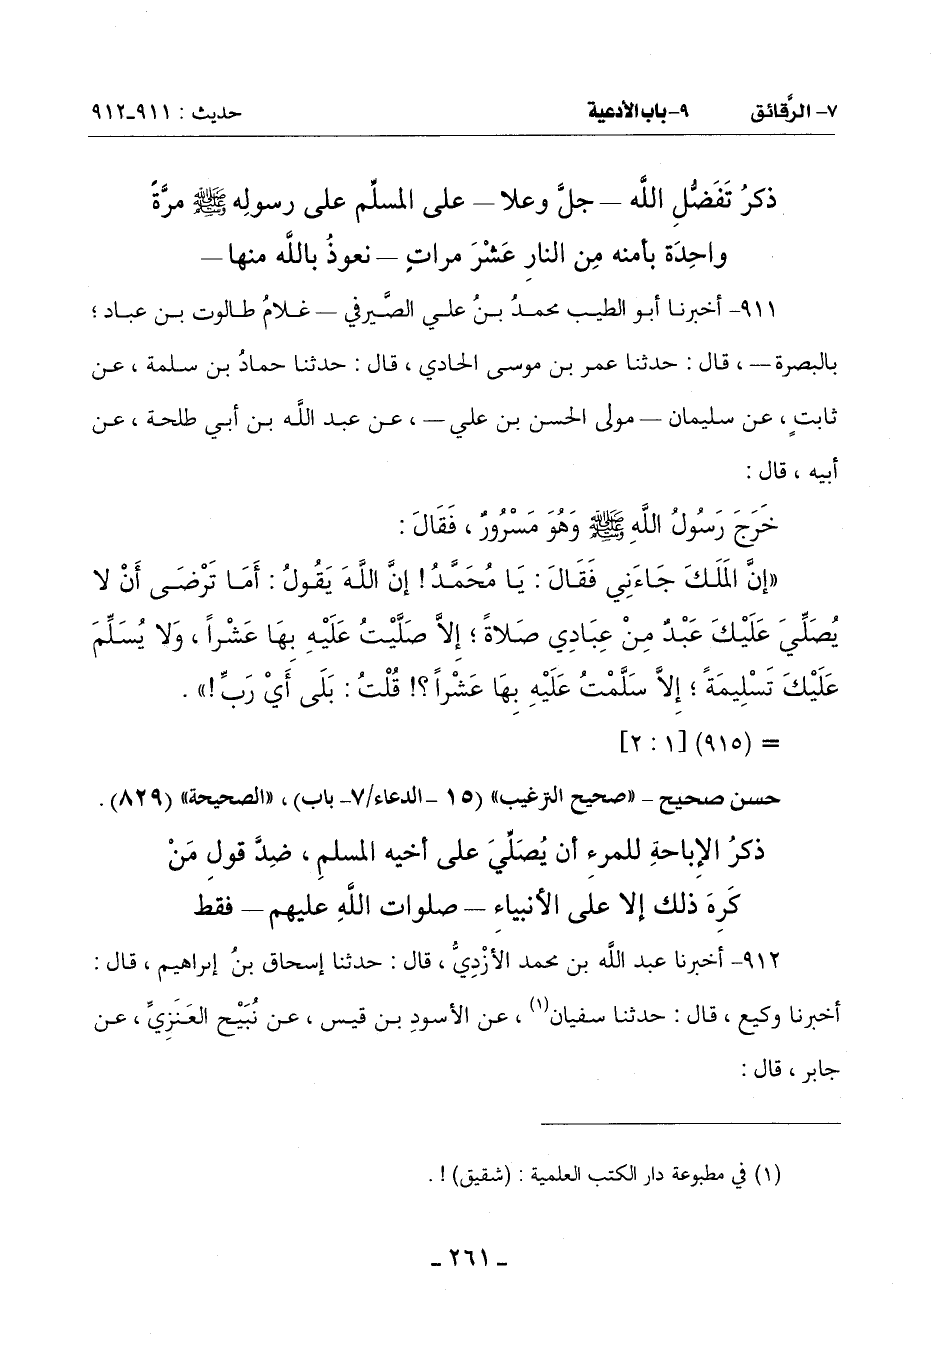 ٧- الرَّقائق ٩-باب الأدعية حديث : ٩١١-٩١٢
ذكرُ تَفَضُّلِ اللَّه – جلَّ وعلا – على المسلِّم على رسولِه ﷺ مرَّةً
واحِدَة بأمنه مِن النار عَشْرَ مراتٍ – نعوذُ باللَّه منها –
٩١١- أخبرنا أبو الطيب محمدُ بنُ علي الصَّيرفي – غلامُ طالوت بن عباد ؛
بالبصرة – ، قال : حدثنا عمر بن موسى الحادي ، قال : حدثنا حمادُ بن سلمة ، عن
ثابتٍ ، عن سليمان – مولى الحسن بن علي – ، عن عبد اللَّه بن أبي طلحة ، عن
أبيه ، قال :
خَرَجَ رَسُولُ اللَّهِ ﷺ وَهُوَ مَسْرُورٌ ، فَقَالَ :
«إنَّ المَلَكَ جَاءَنِي فَقَالَ : يَا مُحَمَّدُ ! إنَّ اللَّهَ يَقُولُ : أَمَا تَرْضَى أَنْ لا
يُصَلِّيَ عَلَيْكَ عَبْدٌ مِنْ عِبَادِي صَلاةً ؛ إلاَّ صَلَّيْتُ عَلَيْهِ بِهَا عَشْراً ، وَلا يُسَلِّمَ
عَلَيْكَ تَسْلِيمَةً ؛ إلاَّ سَلَّمْتُ عَلَيْهِ بِهَا عَشْراً ؟! قُلْتُ : بَلَى أَيْ رَبِّ !» .
= (٩١٥) [١ : ٢]
حسن صحيح – «صحيح الترغيب» (١٥ –الدعاء/٧– باب) ، «الصحيحة» (٨٢٩) .
ذكرُ الإباحةِ للمرءِ أن يُصَلِّيَ على أخيه المسلمِ ، ضِدَّ قولِ مَنْ
كَرِهَ ذلك إلا على الأنبياءِ – صلوات اللَّهِ عليهم – فقط
٩١٢- أخبرنا عبد اللَّه بن محمد الأزْدِيُّ ، قال : حدثنا إسحاق بنُ إبراهيم ، قال :
أخبرنا وكيع ، قال : حدثنا سفيان(١) ، عن الأسودِ بن قيس ، عن نُبَيْحٍ العَنَزِيِّ ، عن
جابر ، قال :
(١) في مطبوعة دار الكتب العلمية : (شقيق) ! .
- ٢٦١ -